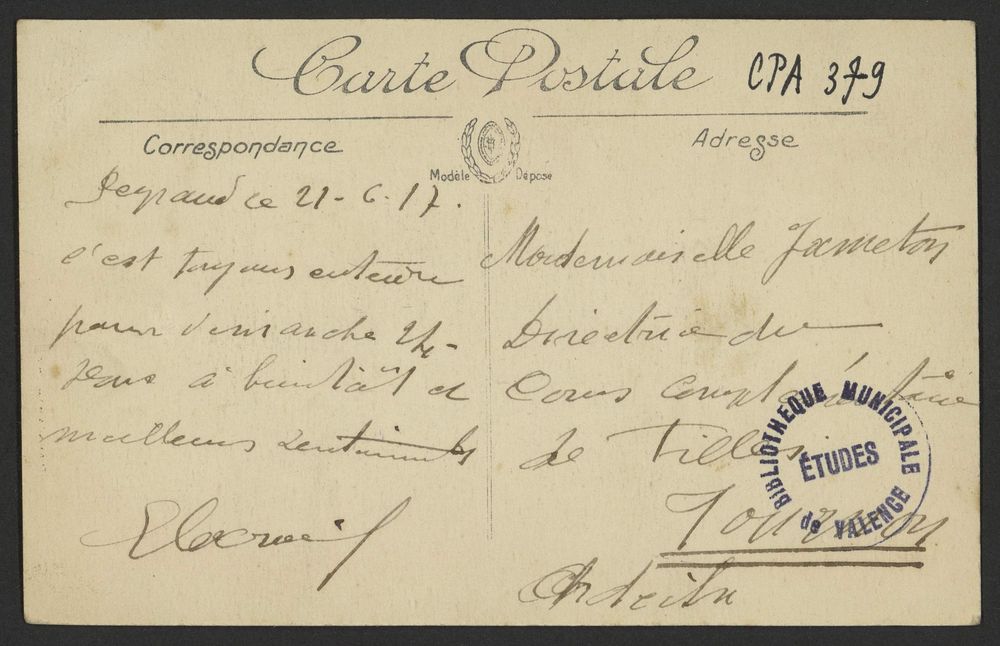 Carte Postale
CPA 379
Correspondance
Adresse
Modèle Déposé
21-6-17.
c'est toujours entendu
pour dimanche 24-
donc à bientôt et
meilleurs sentiments
Mademoiselle Jameton
Directrice du
Cours complémentaire
de Filles
Tournon
Ardèche
BIBLIOTHEQUE MUNICIPALE
ÉTUDES
de VALENCE